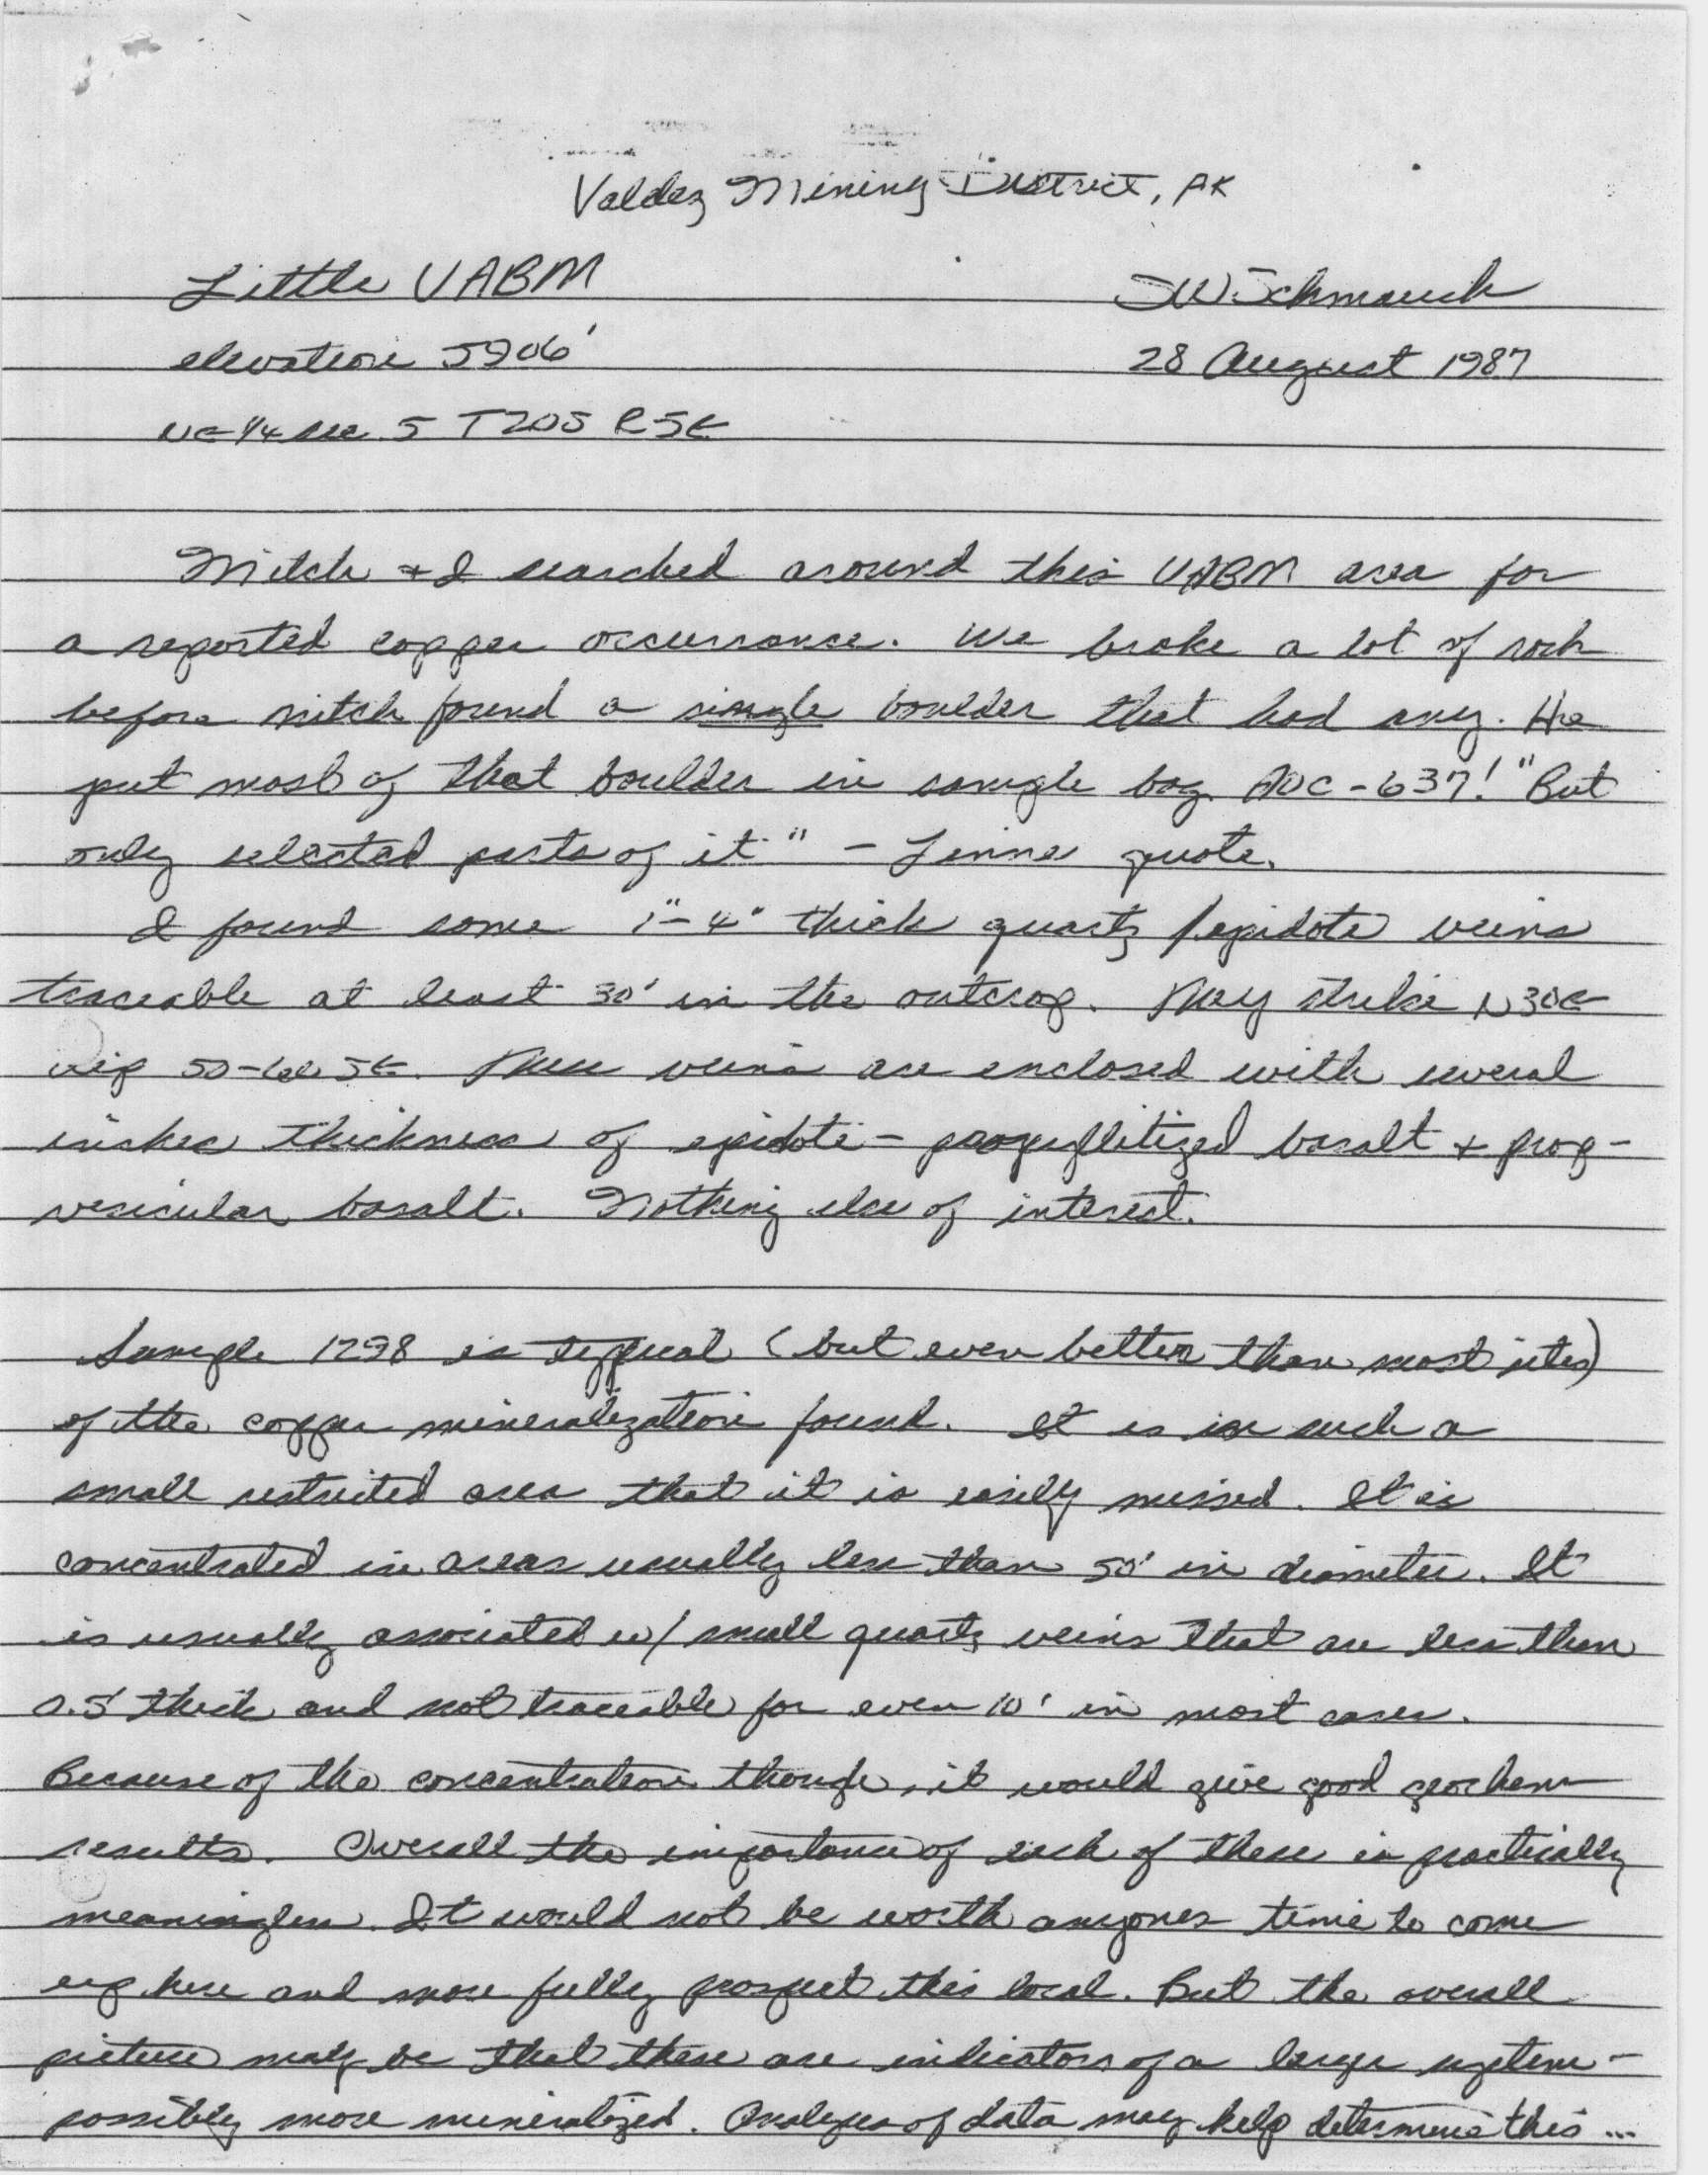 Valdez Mining District, AK
Little VABM
SWSchmauch
elevation 5906'
28 August 1987
NE 1/4 sec 5 T20S R5E
Mitch + I searched around this VABM area for
a reported copper occurrance. We broke a lot of rock
before mitch found a single boulder that had any. He
put most of that boulder in sample bag -637! "But
only selected parts of it" - quote.
I found some 1"-4" thick quartz/epidote veins
traceable at least 30' in the outcrop. They strike N30E
dip 50-60 SE. These veins are enclosed with several
inches thickness of epidote - propyllitized basalt + prop-
vesicular basalt. Nothing else of interest.
Sample 1298 is typical (but even better than most sites)
of the copper mineralization found. It is in such a
small restricted area that it is easily missed. It is
concentrated in areas usually less than 50' in diameter. It
is usually associated w/ small quartz veins that are less than
0.5' thick and not traceable for even 10' in most cases.
Because of the concentration though, it would give good geochem
results. Overall the importance of each of these is practically
meaningless. It would not be worth anyones time to come
up here and more fully prospect this local. But the overall
picture may be that these are indicators of a larger system -
possibly more mineralized. Analyses of data may help determine this ...